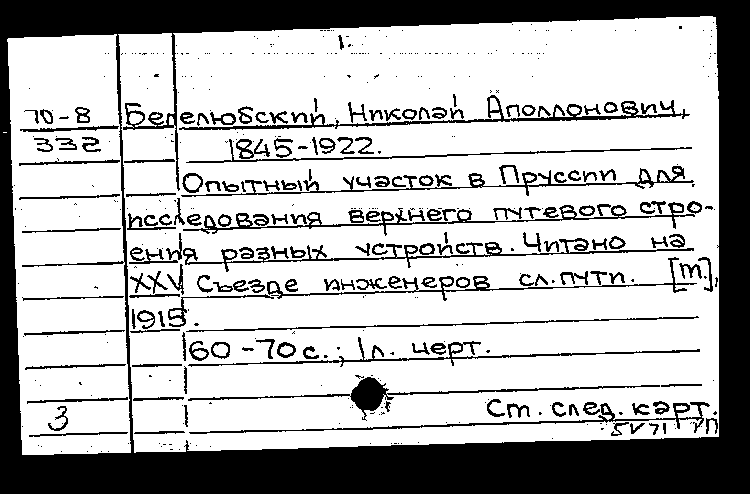 1.
70-8 Белелюбский, Николай Аполлонович,
332 1845-1922.
Опытный участок в Пруссии для
исследования верхнего путевого стро-
ения разных устройств. Читано на
XXV Съезде инженеров сл. пути. [m.],
1915.
60-70 с.; 1 л. черт.
3 Ст. след. карт.
5V71